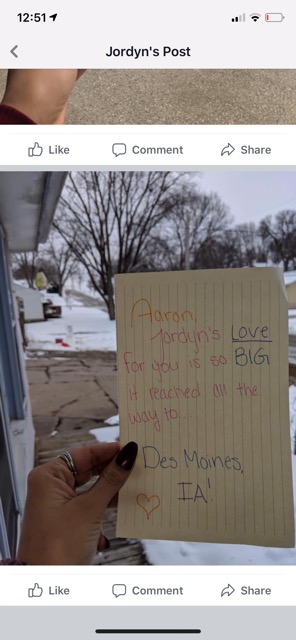 12:51
Jordyn's Post
Like Comment Share
Aaron,
Jordyn's Love
for you is so BIG
it reached all the
way to...
Des Moines,
IA!
Like Comment Share